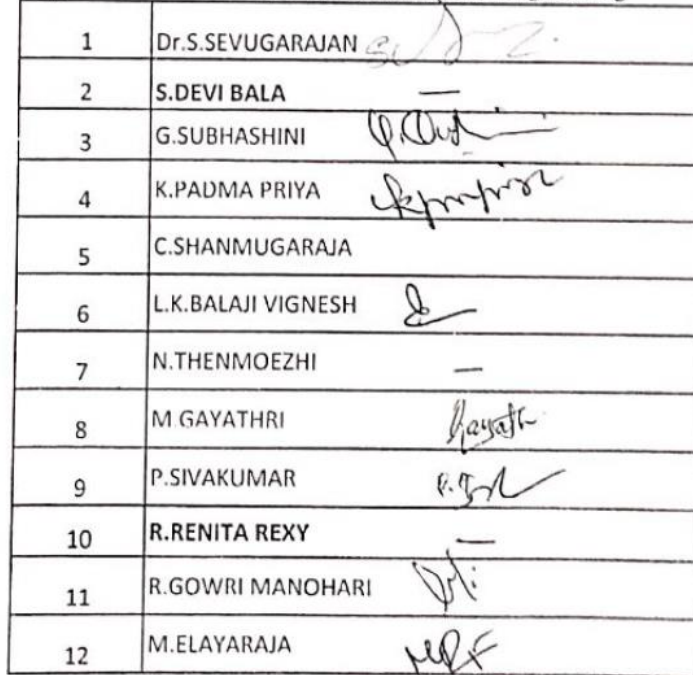 1 Dr.S.SEVUGARAJAN
2 S.DEVI BALA —
3 G.SUBHASHINI
4 K.PADMA PRIYA
5 C.SHANMUGARAJA
6 L.K.BALAJI VIGNESH
7 N.THENMOEZHI —
8 M.GAYATHRI
9 P.SIVAKUMAR
10 R.RENITA REXY —
11 R.GOWRI MANOHARI
12 M.ELAYARAJA